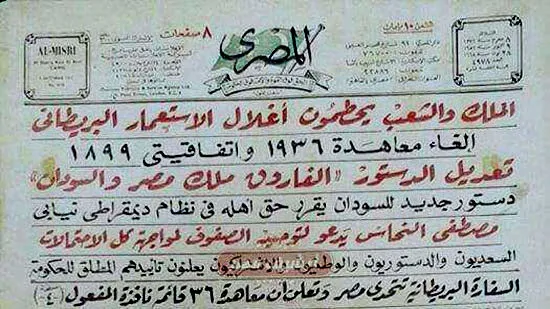 ٨ صفحات
المصرى
AL-MISRI
الملك والشعب يحطمون أغلال الاستعمار البريطانى
إلغاء معاهدة ١٩٣٦ واتفاقيتى ١٨٩٩
تعديل الدستور "الفاروق ملك مصر والسودان"
دستور جديد للسودان يقرر حق أهله فى نظام ديمقراطى نيابى
مصطفى النحاس يدعو لتوحيد الصفوف لمواجهة كل الاحتمالات
السعديون والدستوريون والوطنيون والاشتراكيون يعلنون تأييدهم المطلق للحكومة
السفارة البريطانية تتحدى مصر وتعلن أن معاهدة ٣٦ قائمة نافذة المفعول (٤)